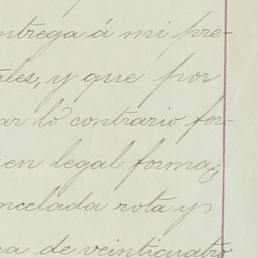 ntrega á mi pre-
ales, y que por
ar lo contrario for-
en legal forma,
ncelada rota y
a de veinticuatro